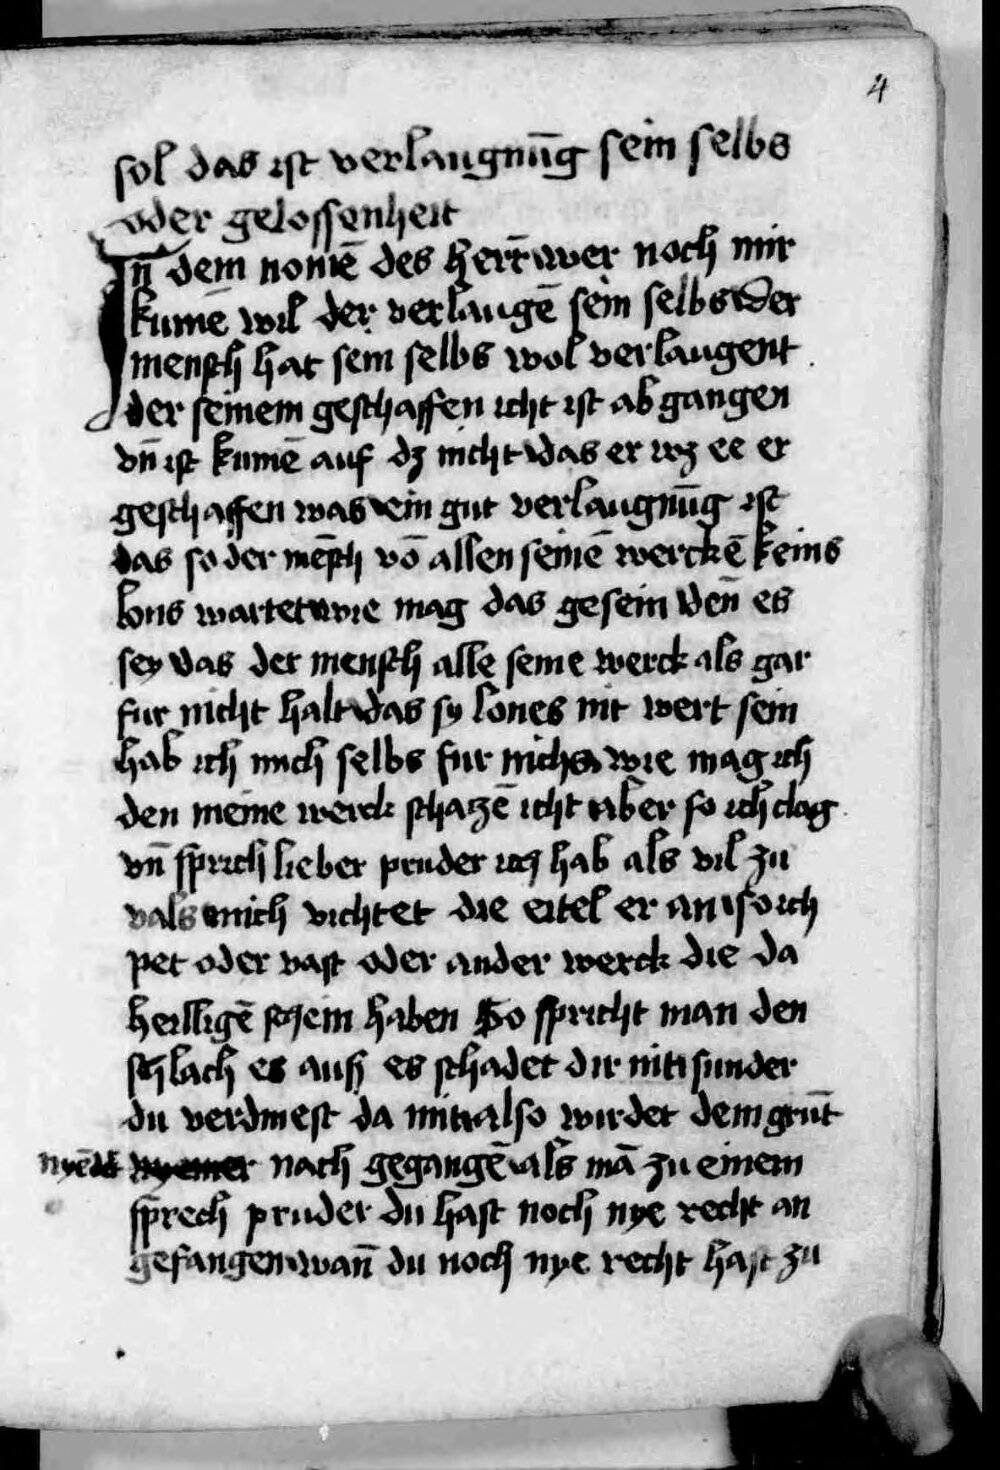 4
sol das ist verlaugnūg sein selbs
oder gelossenheit
In̄ dem nomē des herr̄ wer noch mir
kumē wil der verlaugē sein selbs Der
mensch hat sein selbs wol verlaugent
der seinem geschaffen icht ist abgangen
vn̄ ist kumē auf dz nicht das er wz ee er
geschaffen was ein gut verlaugnūg ist
das so der mēsch vō allen seinē werckē keins
lons wartet wie mag das gesein Den̄ es
sey das der mensch alle seine werck als gar
fur nicht halt das sy lones nit wert sein
hab ich mich selbs fur nichs wie mag ich
den meine werck schatzē icht aber so ich clag
vn̄ sprich lieber pruder ich hab als vil zu
vals mich vichtet die eitel er an so ich
pet oder vast oder ander werck die da
heilligē schein haben So spricht man den
schlach es auß es schadet dir nit sunder
du verdinest da mit also wirdet dem grūt
nyēdt nach gegangē als mā zu einem
sprech pruder du hast noch nye recht an
gefangen wan̄ du noch nye recht hast zu